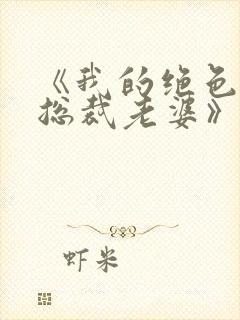 《我的绝色
总裁老婆》
虾米